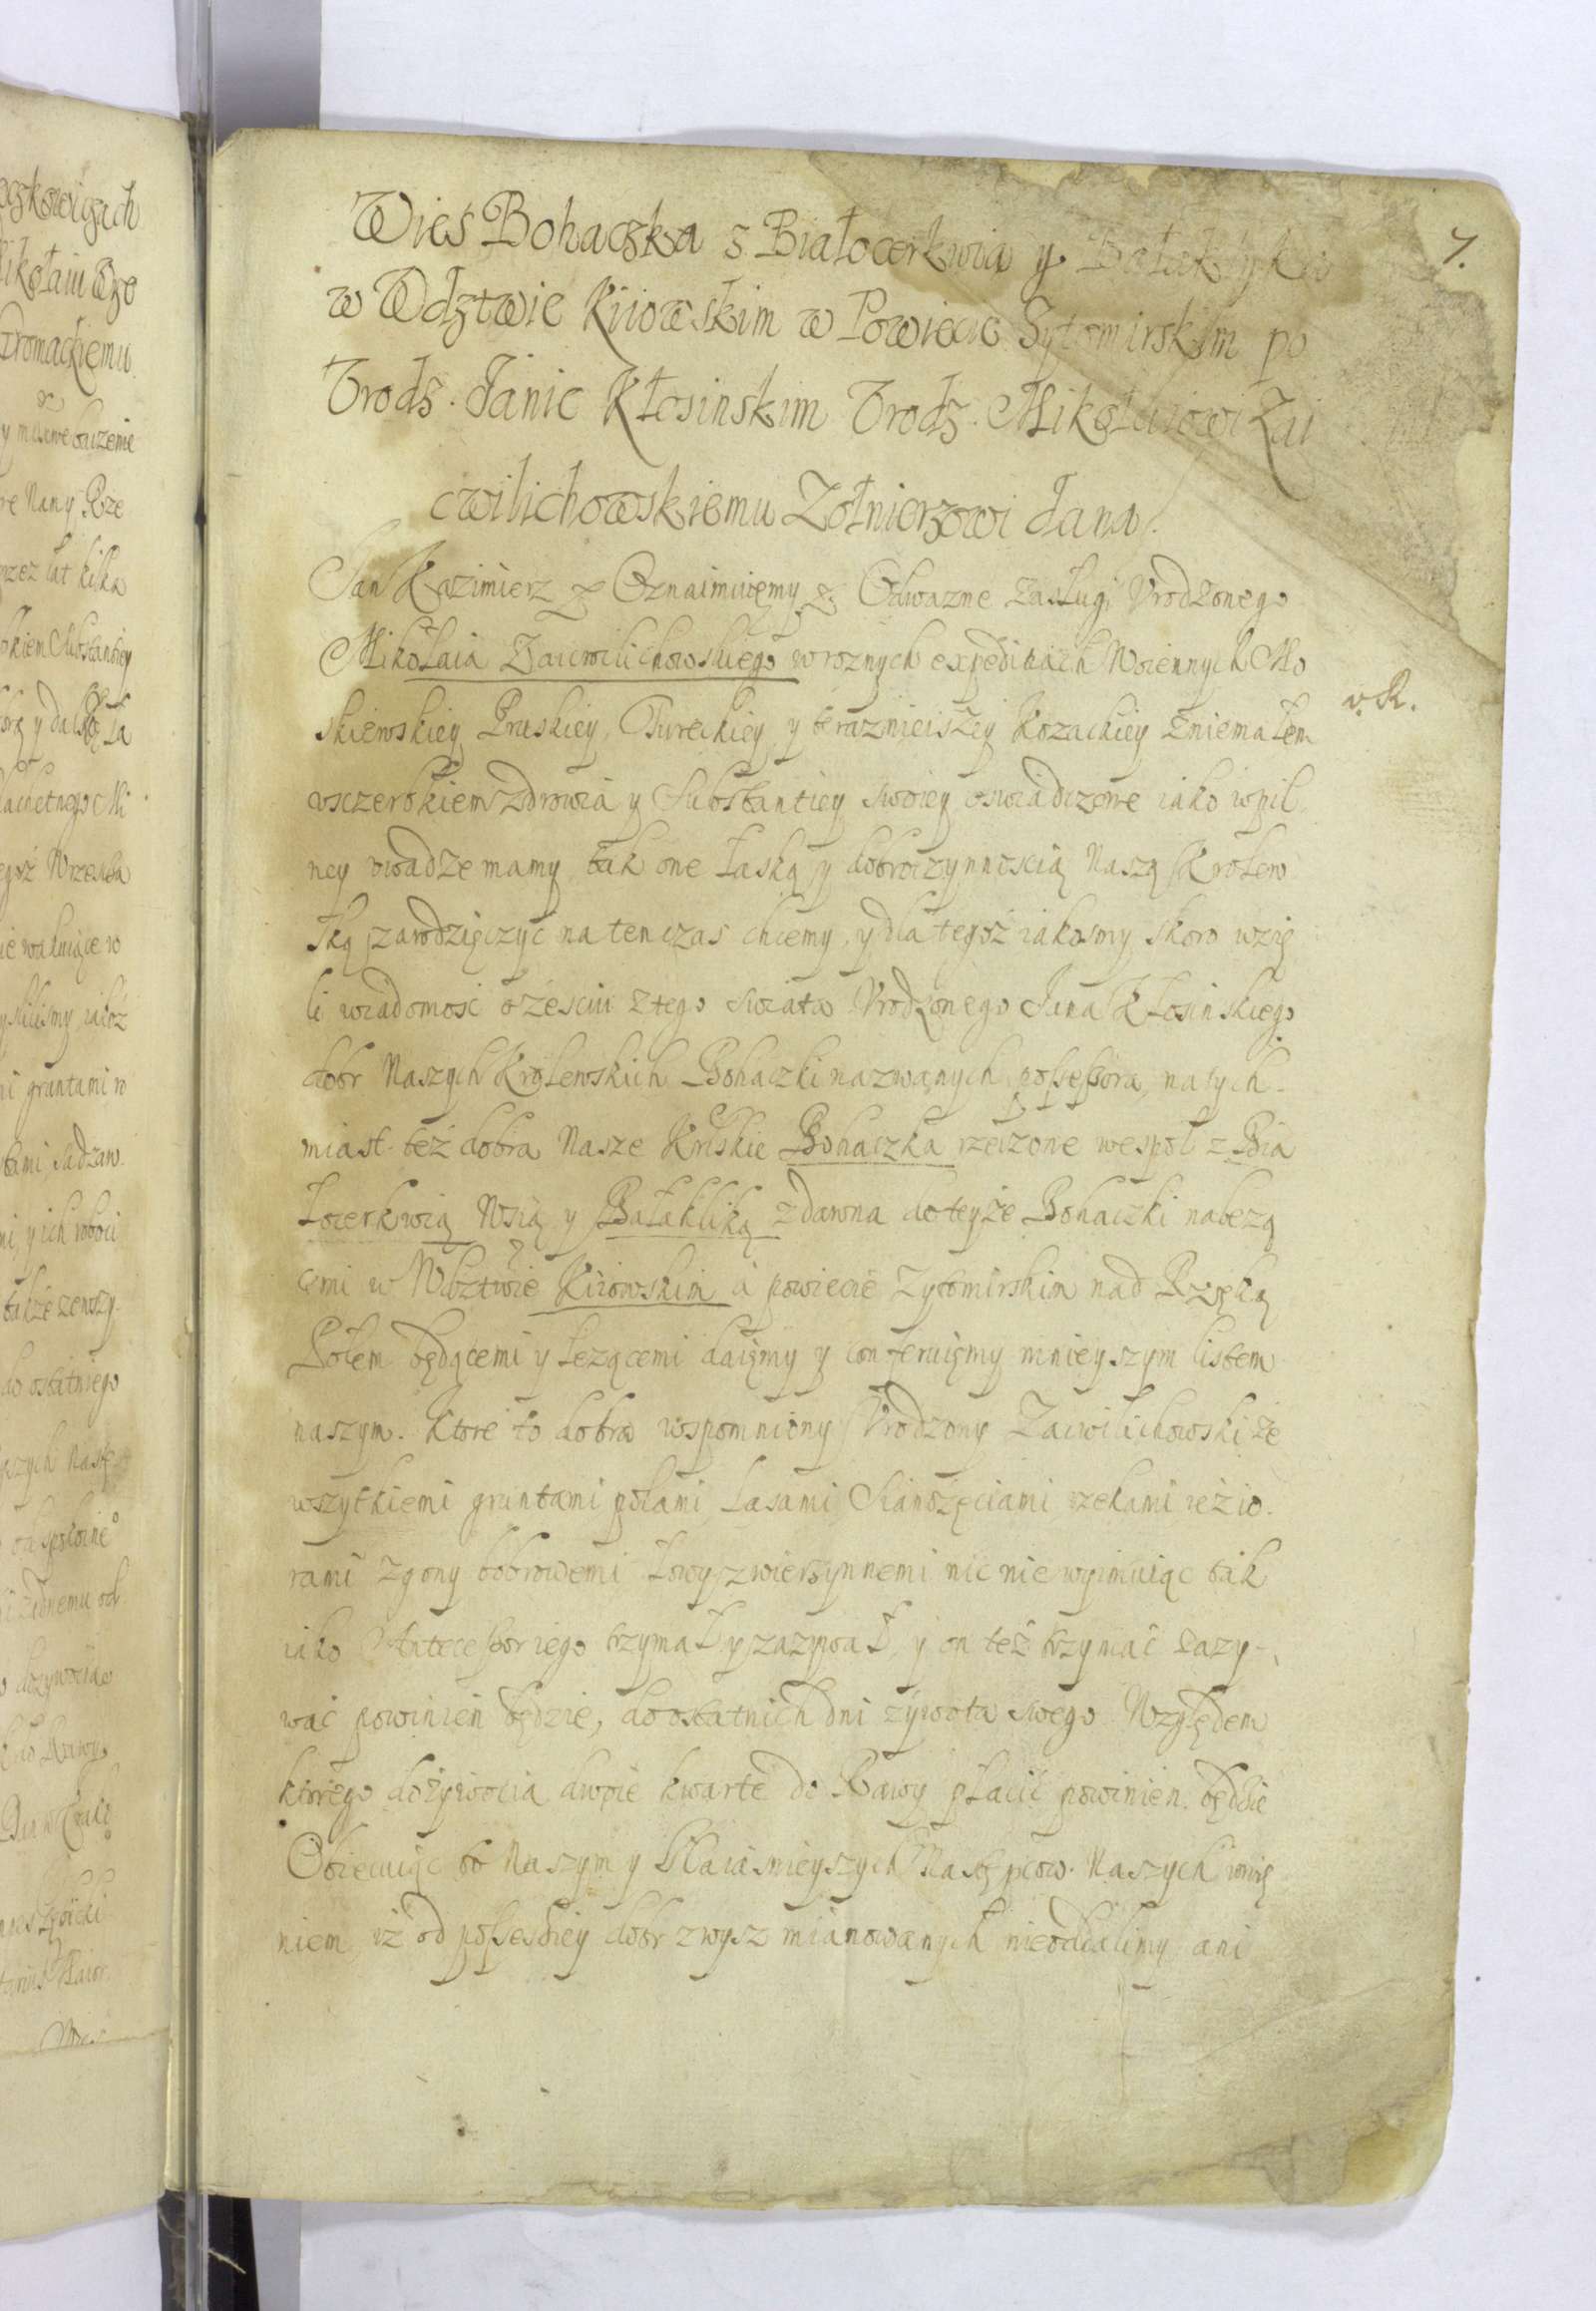 7.
Wieś Bohaczka s Białocerkwią y Bałaklyką
w Wdztwie Kiiowskim w Powiecie Zytomirskim po
Vrodz. Janie Kłosinskim Vrodz. Mikołaiowi Zai
cwilichowskiemu Zołnierzowi dana.
Jan Kazimierz & Oznaimuięmy & Odwazne zasługi Vrodzonego
Mikołaia Zaicwilichowskiego w roznych expeditiach Woiennych Mo
v. R.
skiewskiey Pruskiey, Tureckiey, y teraznieiszey Kozackiey zniemałem
vsczerbkiem zdrowia y Substantiey swoiey oswiadczone iako w pil
ney vwadze mamy tak one łaską y dobroczynnoscią Naszą Krolew
ską zawdzięczyć na ten czas chcemy, y dla tegoż iakosmy skoro wzię
li wiadomość o ześciu z tego swiata Vrodzonego Jana Kłosinskiego
dobr Naszych Krolewskich Bohaczki nazwanych possessora, natych-
miast też dobra Nasze Krlskie Bohaczka rzeczone wespoł z Bia
łocerkwią Wsią y Bałakliką zdawna do teyże Bohaczki należą
cemi w Wdztwie Kiiowskim a powiecie Zytomirskim nad Rzeką
Psołem będącemi y leżącemi daięmy y conferuięmy ninieyszym listem
naszym. Ktore to dobra wspomniony Vrodzony Zacwilichowski ze
wszytkiemi gruntami polami, lasami, Sianożęciami rzekami ieżio
rami zgony bobrowemi łowy zwierzynnemi nic nie wyimuiąc tak
iako Antecessor iego trzymał y zazywał, y on też trzymać zazy-
wać powinien będzie, do ostatnich dni żywota swego Względem
ktorego dożywocia dwoie kwarte do Rawy płacić powinien będzie
Obiecuiąc to Naszym y Naiasnieyszych Następcow Naszych imie
niem, iż od possessiey dobr zwysz mianowanych nieoddalimy, ani